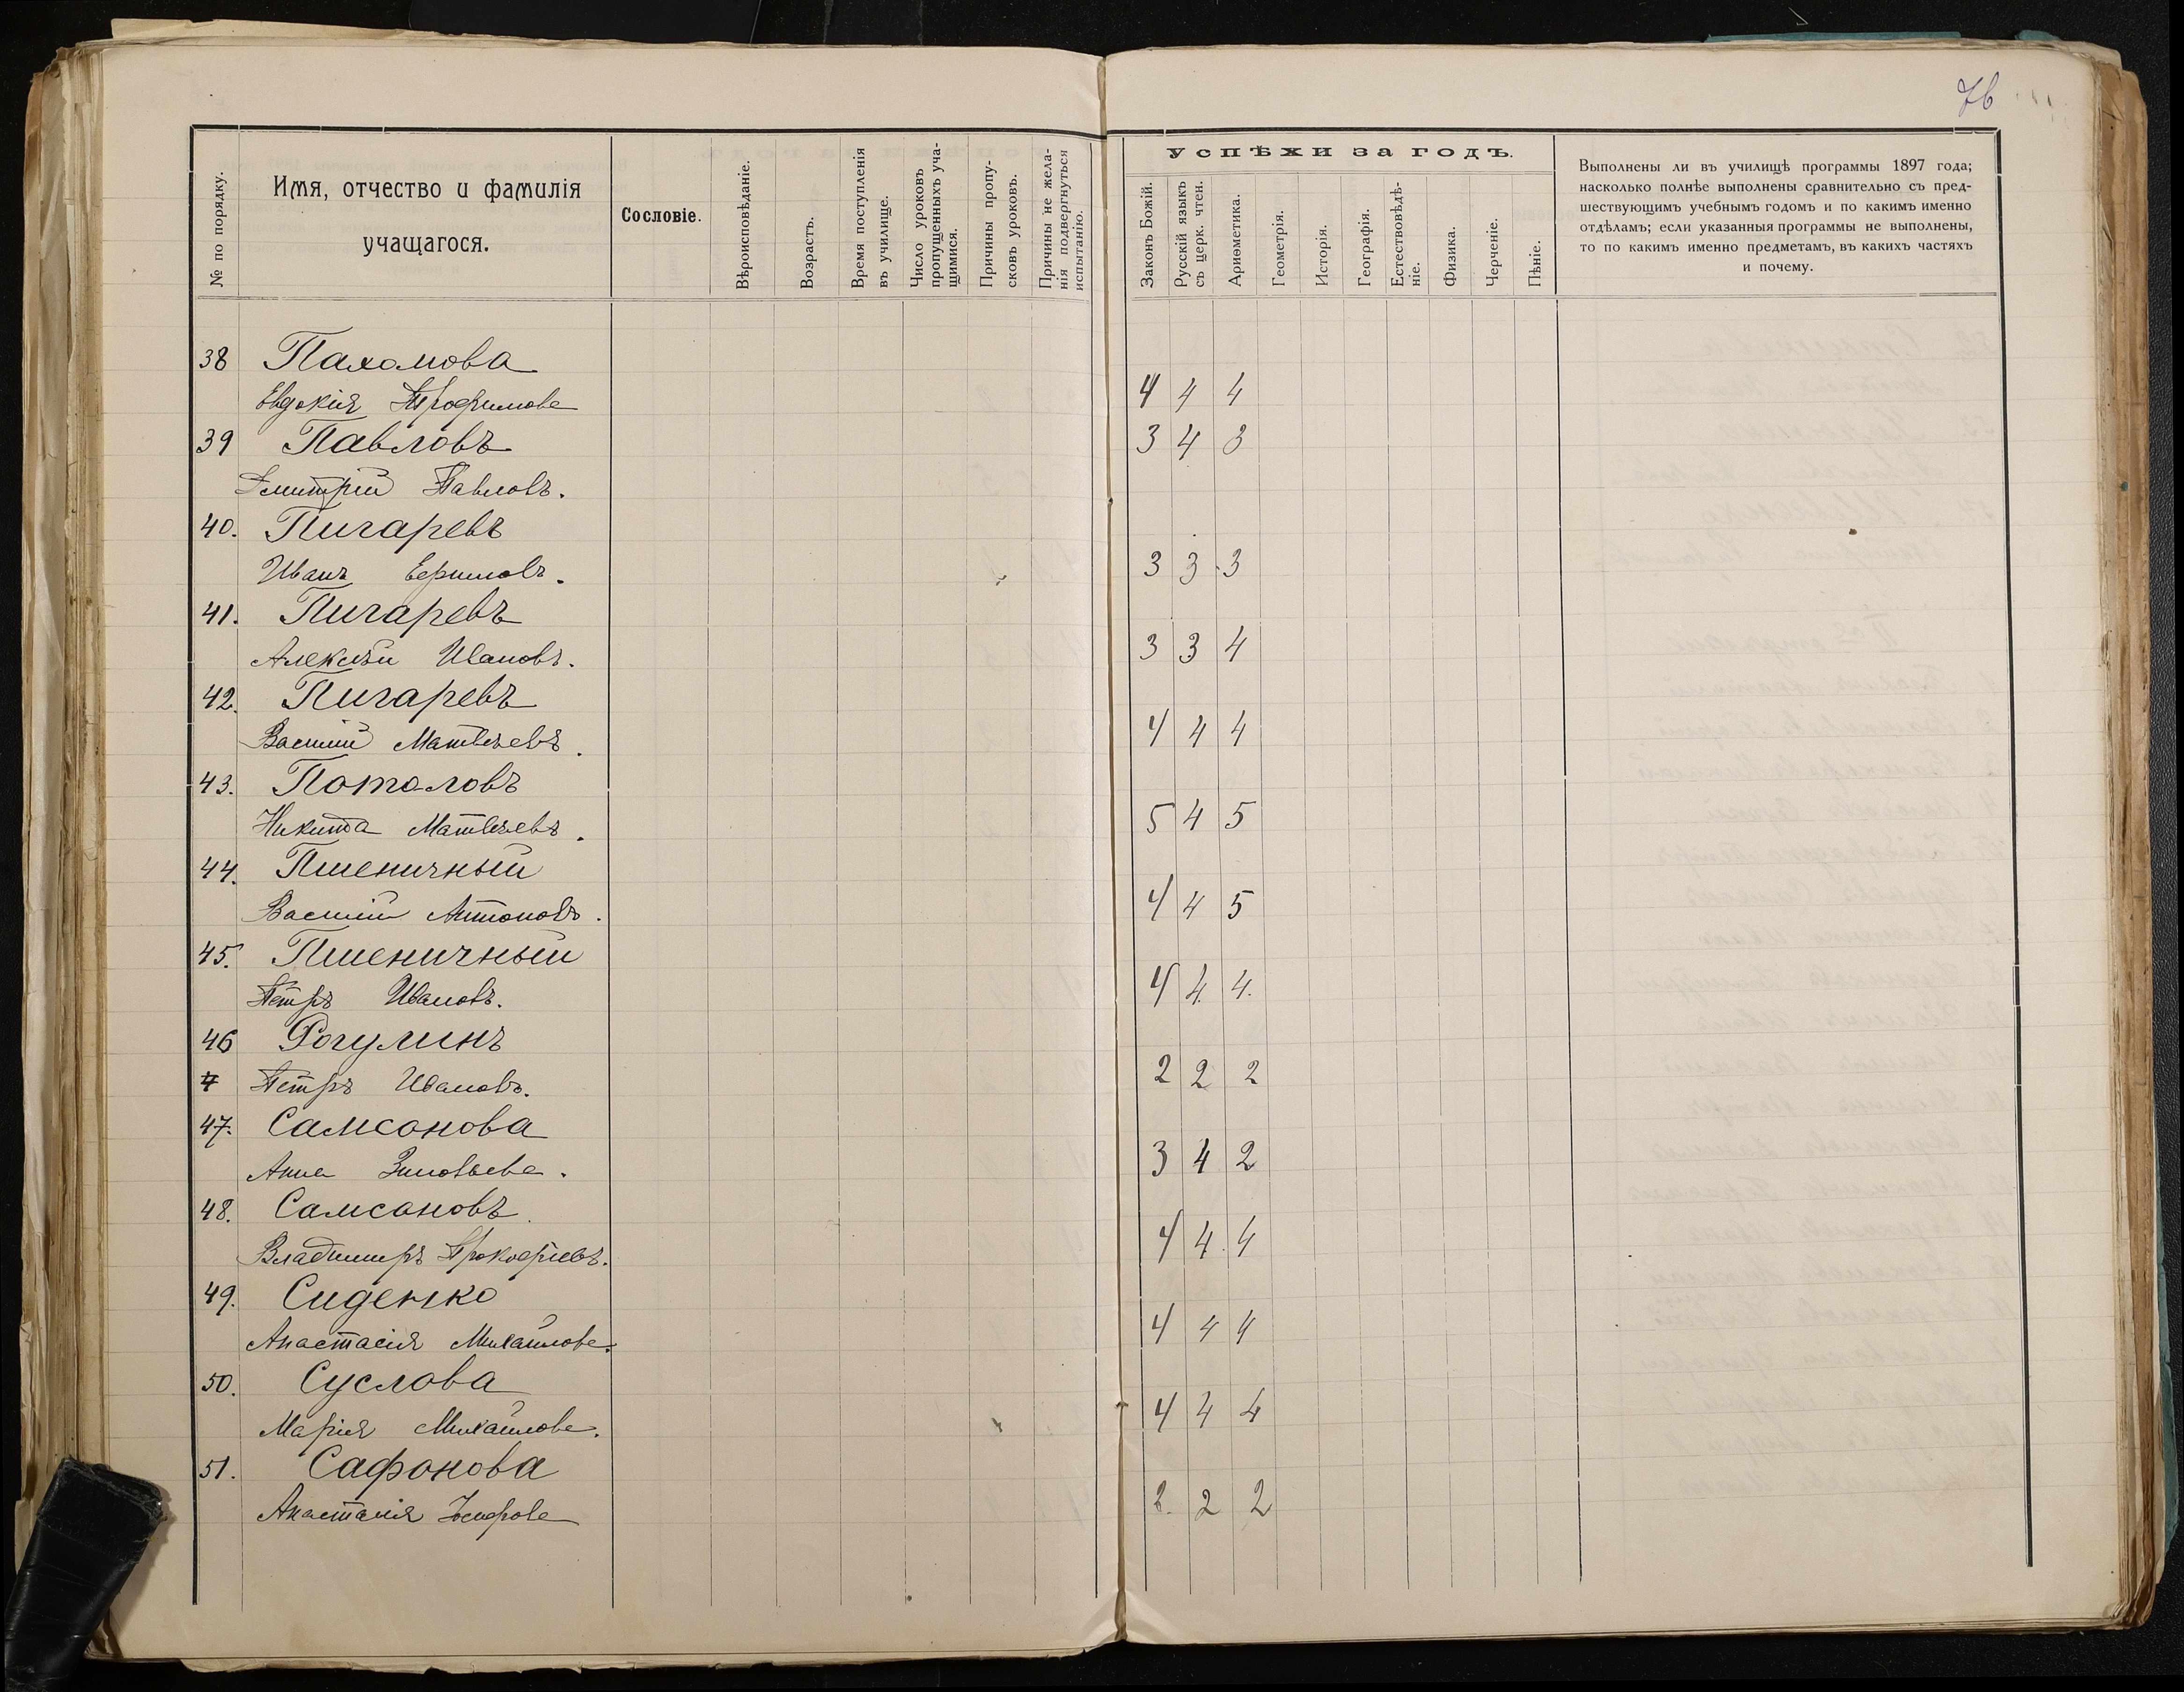 76
№ по порядку.
Имя, отчество и фамилія
учащагося.
Сословіе.
Вѣроисповѣданіе.
Возрастъ.
Время поступленія
въ училище.
Число уроковъ
пропущенныхъ уча-
щимися.
Причины пропу-
сковъ уроковъ.
Причины не жела-
нія подвергнуться
испытанію.
Успѣхи за годъ.
Законъ Божій.
Русскій языкъ
съ церк. чтен.
Ариѳметика.
Геометрія.
Исторія.
Географія.
Естествовѣдѣ-
ніе.
Физика.
Черченіе.
Пѣніе.
Выполнены ли въ училищѣ программы 1897 года;
насколько полнѣе выполнены сравнительно съ пред-
шествующимъ учебнымъ годомъ и по какимъ именно
отдѣламъ; если указанныя программы не выполнены,
то по какимъ именно предметамъ, въ какихъ частяхъ
и почему.
38 Пахомова
Евдокія Трофимова 4 4 4
39 Павловъ 3 4 3
Дмитрій Павловъ.
40. Пигаревъ
Иванъ Ефимовъ. 3 3 3
41. Пигаревъ
Алексѣй Ивановъ. 3 3 4
42. Пигаревъ
Василій Матвѣевъ. 4 4 4
43. Потаповъ
Никита Матвѣевъ. 5 4 5
44. Пшеничный
Василій Антоновъ. 4 4 5
45. Пшеничный
Петръ Ивановъ. 4 4. 4.
46 Рогулинъ
Петръ Ивановъ. 2 2 2
47. Самсонова
Анна Зиновьева. 3 4 2
48. Самсоновъ
Владимиръ Прокофіевъ. 4 4. 4
49. Сиденко
Анастасія Михайлова. 4 4 4
50. Суслова
Марія Михайлова. 4 4 4
51. Сафонова
Анастасія 2. 2 2